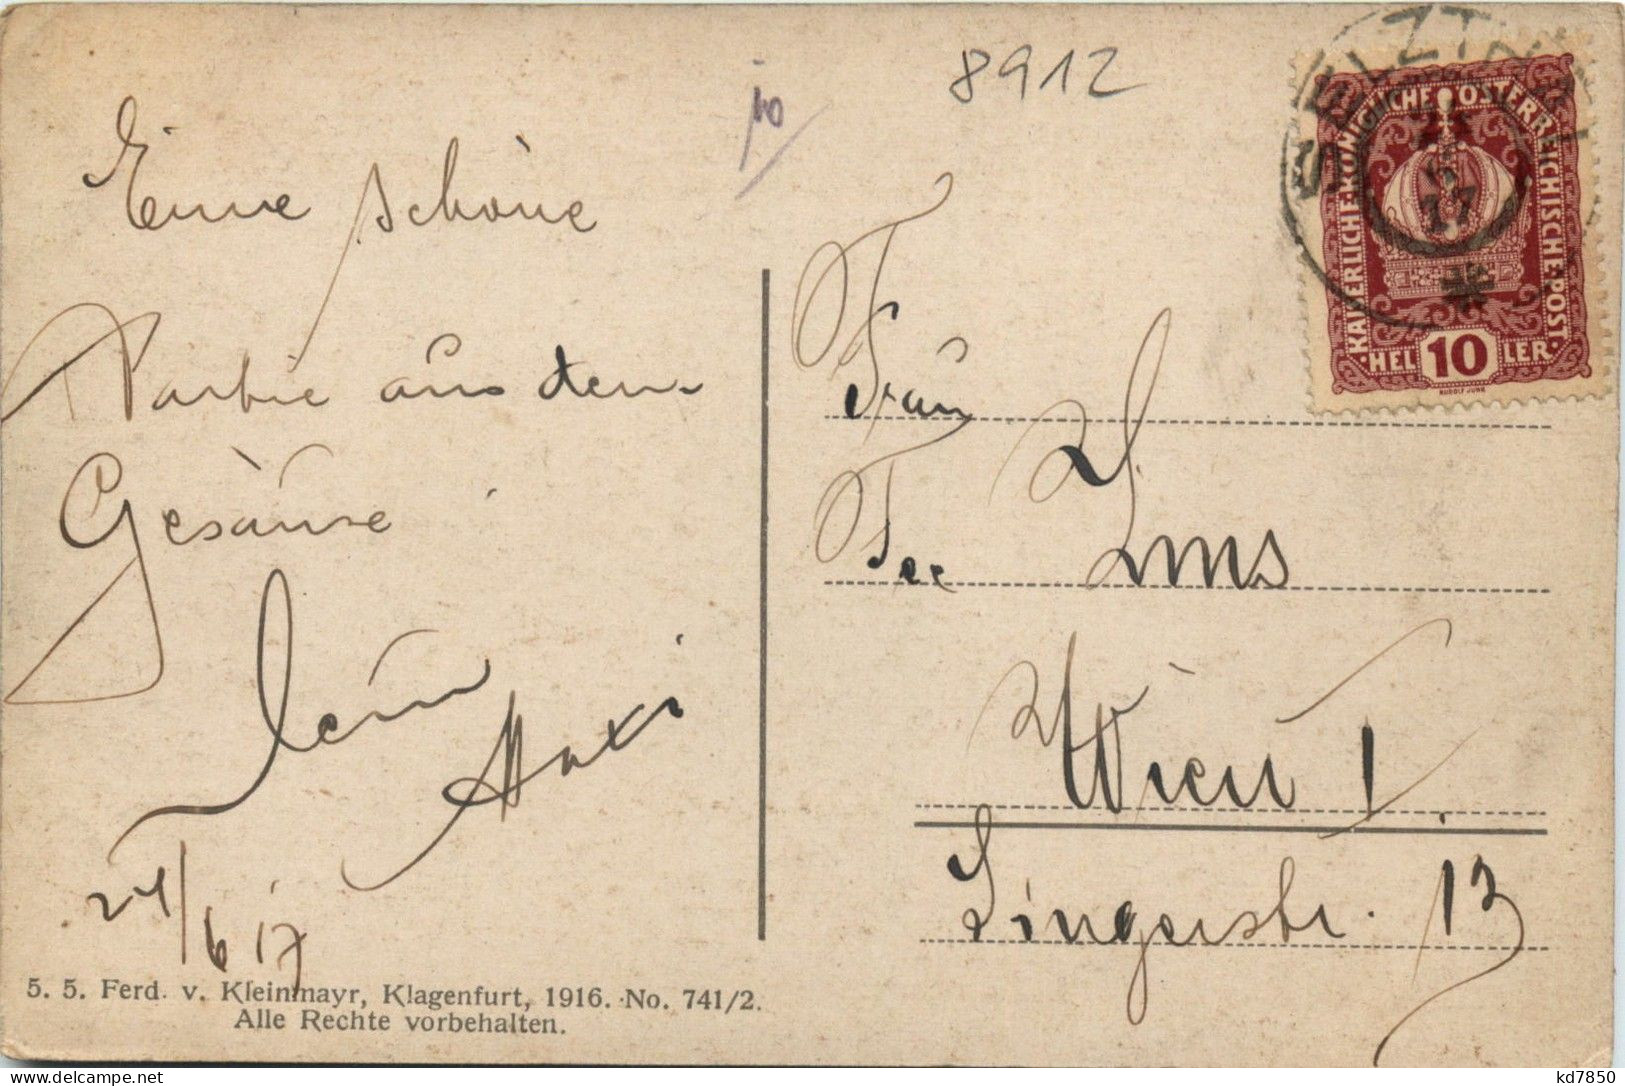 8912
Eine schöne
Partie aus dem
Gesäuse
Dein
Maxi
24/6 17
5. 5. Ferd. v. Kleinmayr, Klagenfurt, 1916. No. 741/2.
Alle Rechte vorbehalten.
SELZTHAL
17
KAISERLICHE KÖNIGLICHE ÖSTERREICHISCHE POST
HELLER
10
RUDOLF JUNK
Frau
Wien I.
Singerstr. 13
delcampe.net
kd7850